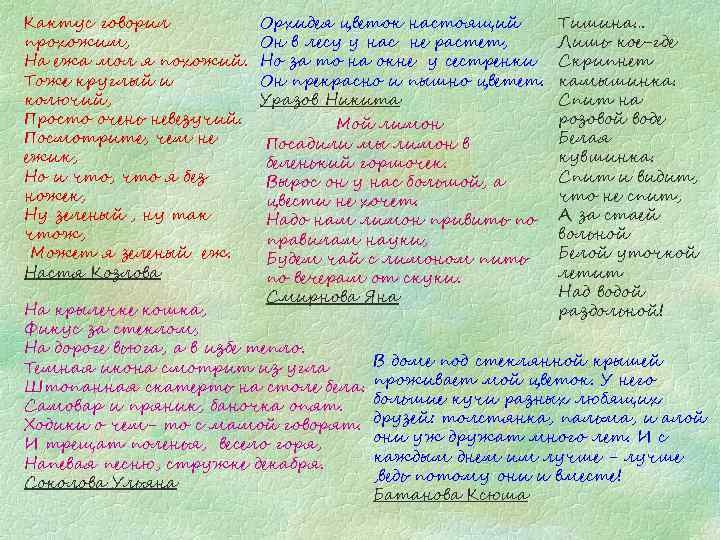 Кактус говорил
прохожим,
На ежа мол я похожий.
Тоже круглый и
колючий,
Просто очень невезучий.
Посмотрите, чем не
ежик,
Но и что, что я без
ножек,
Ну зеленый , ну так
чтож,
Может я зеленый еж.
Настя Козлова
Орхидея цветок настоящий
Он в лесу у нас не растет,
Но за то на окне у сестренки
Он прекрасно и пышно цветет.
Уразов Никита
Мой лимон
Посадили мы лимон в
беленький горшочек.
Вырос он у нас большой, а
цвести не хочет.
Надо нам лимон привить по
правилам науки,
Будем чай с лимоном пить
по вечерам от скуки.
Смирнова Яна
Тишина...
Лишь кое-где
Скрипнет
камышинка.
Спит на
розовой воде
Белая
кувшинка.
Спит и видит,
что не спит,
А за стаей
вольной
Белой уточкой
летит
Над водой
раздольной!
На крылечке кошка,
Фикус за стеклом,
На дороге вьюга, а в избе тепло.
Темная икона смотрит из угла
Штопанная скатерть на столе бела.
Самовар и пряник, баночка опят.
Ходики о чем- то с мамой говорят.
И трещат поленья, весело горя,
Напевая песню, стружке декабря.
Соколова Ульяна
В доме под стеклянной крышей
проживает мой цветок. У него
большие кучи разных любящих
друзей: толстянка, пальма, и алой
они уж дружат много лет. И с
каждым днем им лучше – лучше
,ведь потому они и вместе!
Батанова Ксюша